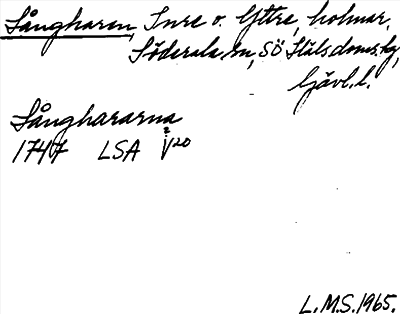 Långharen, Inre o. Yttre, holmar,
Söderala sn, SÖ Häls. doms.hg,
Gävl.l.
Långhararna
1747 LSA V20
L.M.S. 1965.